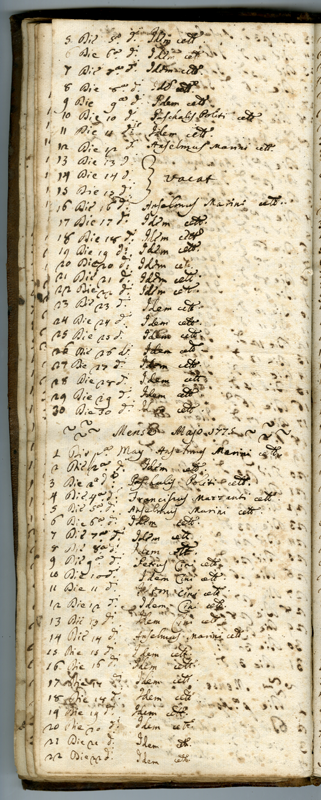 5 Die 5ª d: Idem cett.
6 Die 6ª d: Idem cett.
7 Die 7ª d: Idem cett.
8 Die 8ª d: Idem cett.
9 Die 9ª d: Idem cett.
10 Die 10 d: Paschalis Politi cett.
11 Die 11 d: Idem cett.
12 Die 12 d: Anselmus Marini cett.
13 Die 13 d:
14 Die 14 d: vacat
15 Die 15 d:
16 Die 16 d: Anselmus Marini cett.
17 Die 17 d: Idem cett.
18 Die 18 d: Idem cett.
19 Die 19 d: Idem cett.
20 Die 20 d: Idem cett.
21 Die 21 d: Idem cett.
22 Die 22 d: Idem cett.
23 Die 23 d: Idem cett.
24 Die 24 d: Idem cett.
25 Die 25 d: Idem cett.
26 Die 26 d: Idem cett.
27 Die 27 d: Idem cett.
28 Die 28 d: Idem cett.
29 Die 29 d: Idem cett.
30 Die 30 d: Idem cett.
Mense Majo 1775
1 Die pª May Anselmus Marini cett.
2 Die 2ª d: Idem cett.
3 Die 3ª d: Paschalis Politi cett.
4 Die 4ª d: Franciscus cett.
5 Die 5ª d: Anselmus Marini cett.
6 Die 6ª d: Idem cett.
7 Die 7ª d: Idem cett.
8 Die 8ª d: Idem cett.
9 Die 9ª d: Cini cett.
10 Die 10 d: Idem Cini cett.
11 Die 11 d: Idem Cini cett.
12 Die 12 d: Idem Cini cett.
13 Die 13 d: Idem Cini cett.
14 Die 14 d: Anselmus Marini cett.
15 Die 15 d: Idem cett.
16 Die 16 d: Idem cett.
17 Die 17 d: Idem cett.
18 Die 18 d: Idem cett.
19 Die 19 d: Idem cett.
20 Die 20 d: Idem cett.
21 Die 21 d: Idem cett.
22 Die 22 d: Idem cett.